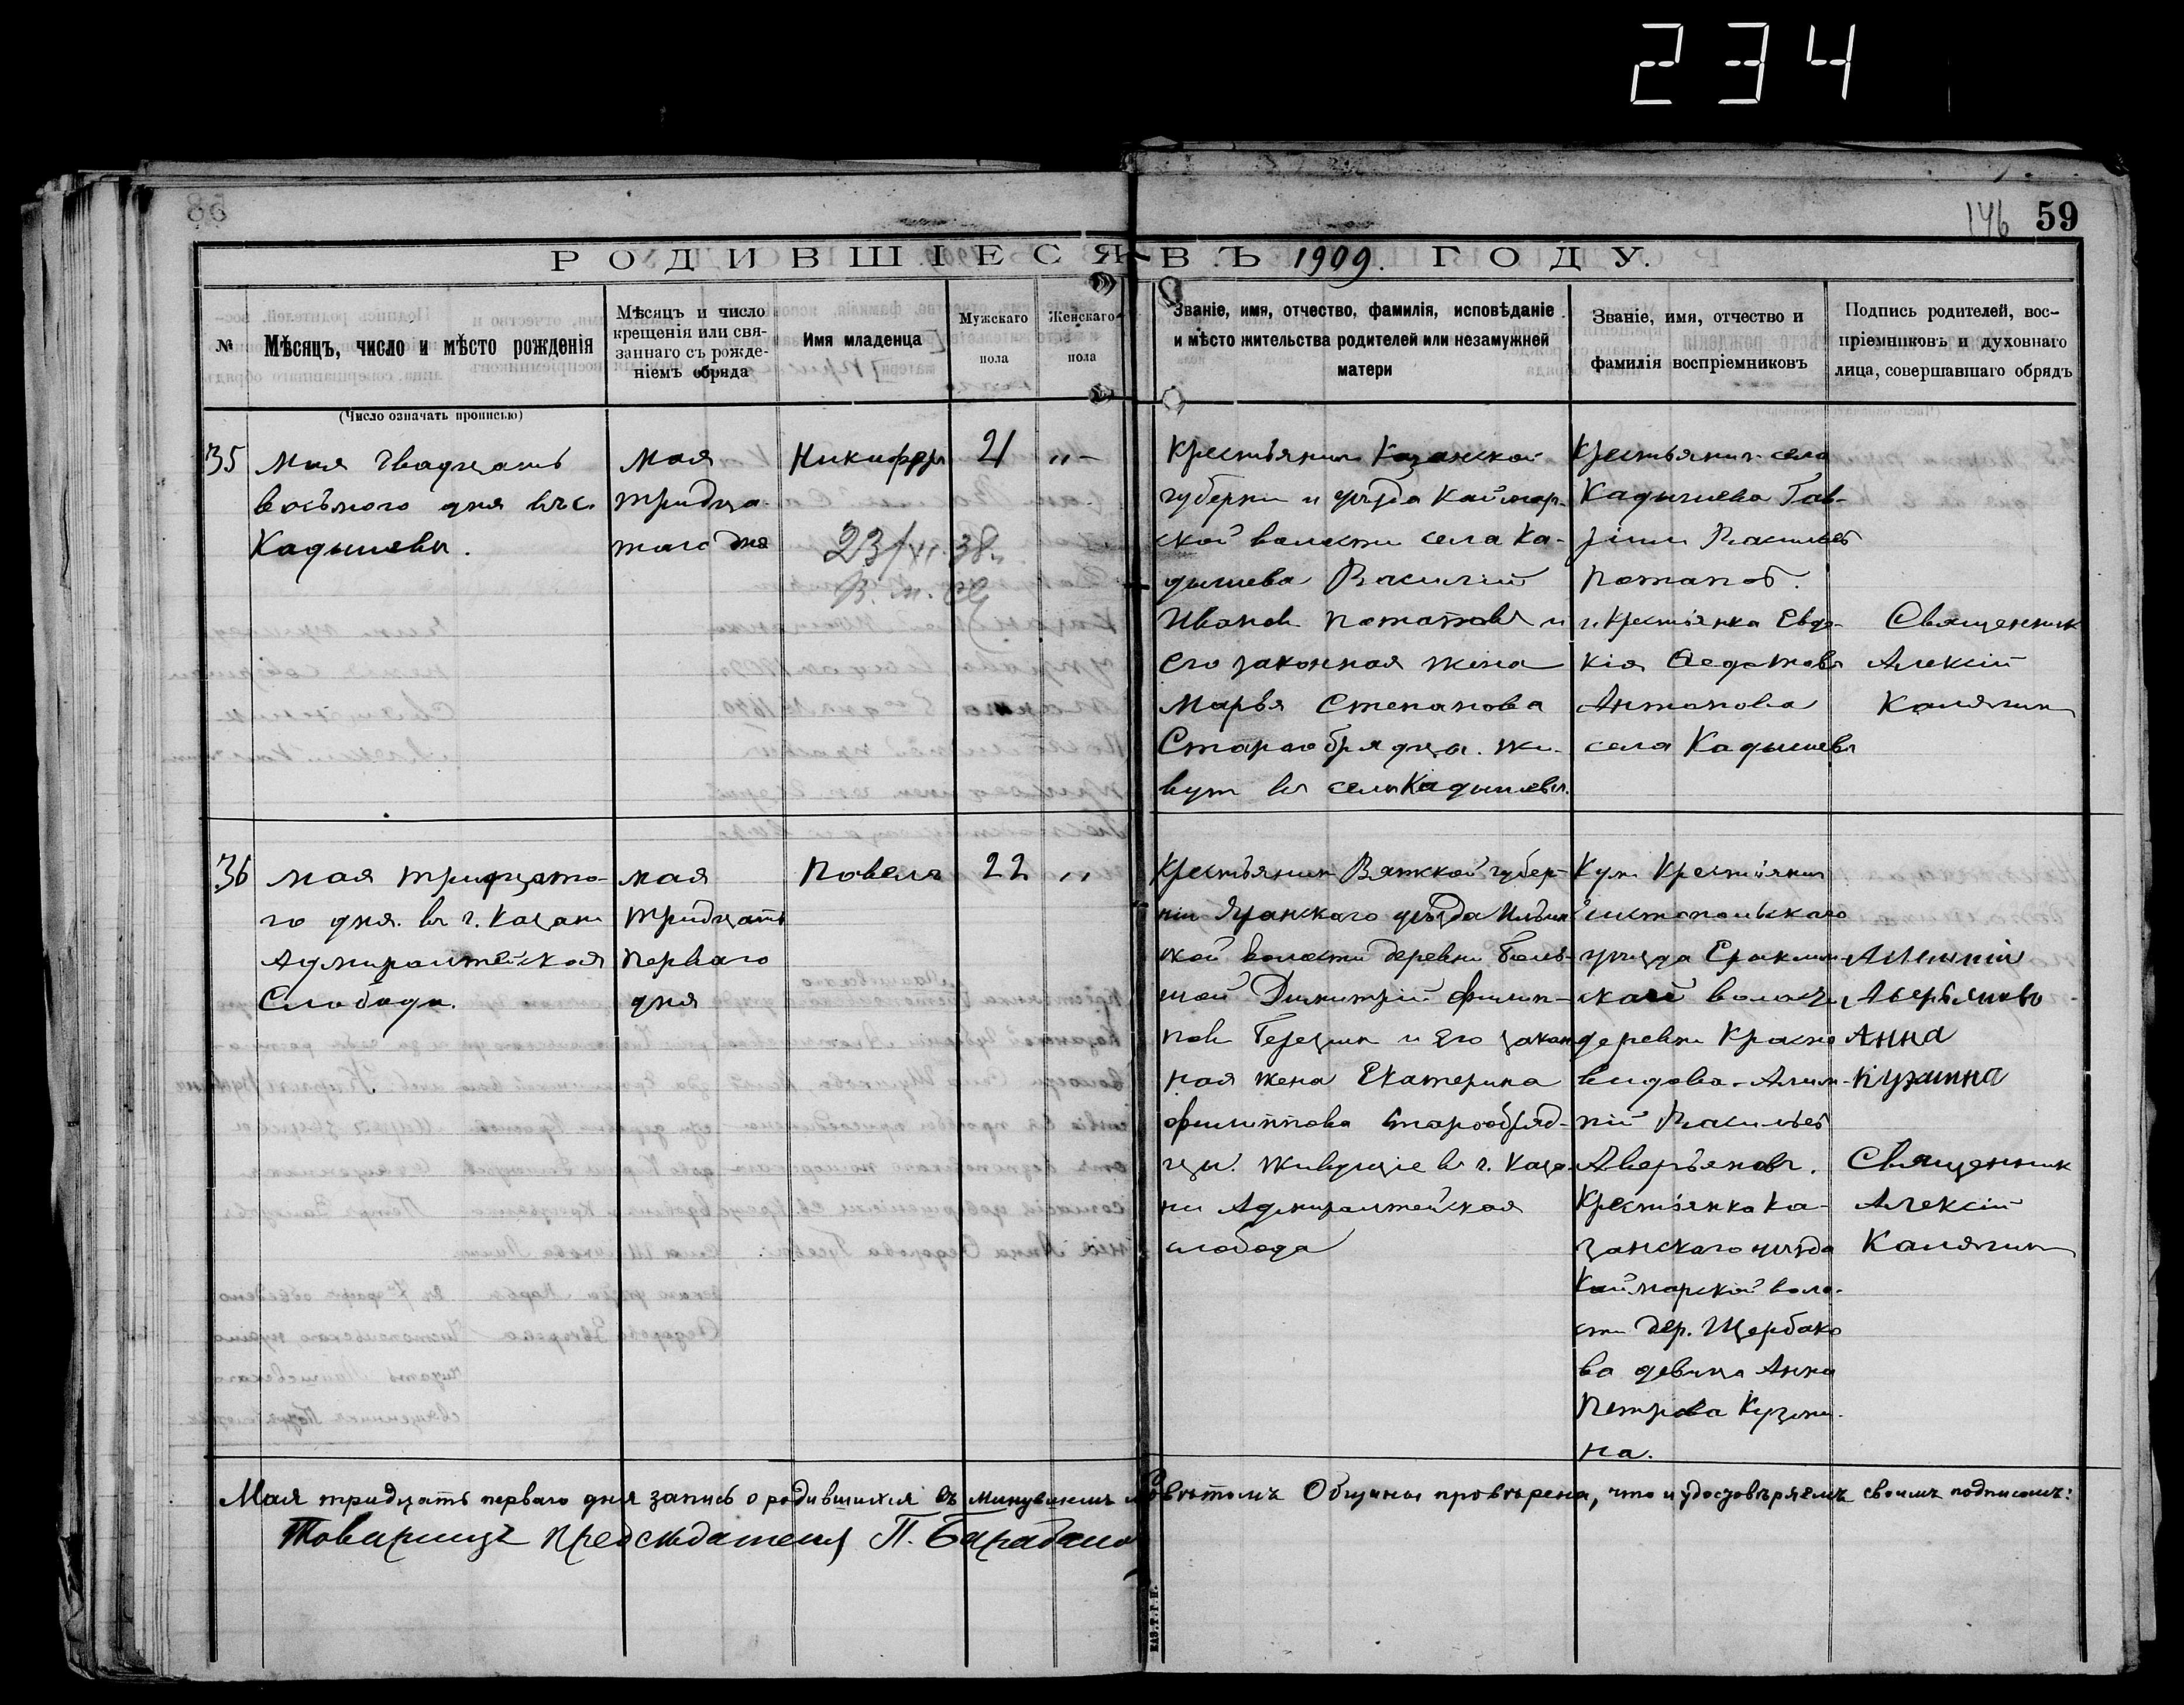 234
146 59
РОДИВШІЕСЯ ВЪ 1909. ГОДУ.
№
Мѣсяцъ, число и мѣсто рожденія
(Число означать прописью)
Мѣсяцъ и число
крещенія или свя-
заннаго съ рожде-
ніемъ обряда
Имя младенца
Мужскаго
пола
Женскаго
пола
Званіе, имя, отчество, фамилія, исповѣданіе
и мѣсто жительства родителей или незамужней
матери
Званіе, имя, отчество и
фамилія воспріемниковъ
Подпись родителей, вос-
пріемниковъ и духовнаго
лица, совершавшаго обрядъ
35
Мая двадцать
восьмого дня въ с.
Кадышевѣ.
мая
тридца
таго дня
Никифоръ
23/XI 38.
21
„ –
Крестьянинъ Казанской
губерни и уѣзда Каймар-
ской волости села Ка-
дышева Василий
Иванов Потаповъ и
его законная жена
Марья Степанова
Старообрядцы. жи-
вут въ селѣ Кадышевѣ.
Крестьянинъ села
Кадышева Гав-
Васильев
Потапов.
и Крестьянка Евдо-
кія Федотова
Антонова
села Кадышева
Священник
Алексій
Калягин
36
мая тридцато-
го дня. въ г. Казани
Адмиралтейская
Слобода.
мая
тридцать
перваго
дня
Павелъ
22
„
Крестьянин Вятской губер-
ніи Яранскаго уѣзда Ильин
ской волости деревни Боль-
шой Димитрій Филип-
пов Березин и Его закон
ная жена Екатерина
Филиппова старообряд-
цы. Живущіе въ г. Каза-
ни Адмиралтейская
слобода
Кум Крестьянин
Чистопольскаго
уѣзда Ераклин-
ской волости
деревни Красно
видова - Алим-
пій Васильев
Аверьянов.
Крестьянка Ка-
занскаго уѣзда
Каймарской воло-
сти дер. Щербако
ва девица Анна
Петрова Кузми-
на.
Алимпій
Аверьянов
Анна
Кузмина
Священник
Алексій
Калягин
Мая тридцать перваго дня запись о родившихся въ минувшемъ Совѣтомъ Общины провѣрена, что и удостовѣряемъ своимъ подписомъ:
Товарищъ предсѣдателя П. Барабанов
КАЗ.Т.Г.П.